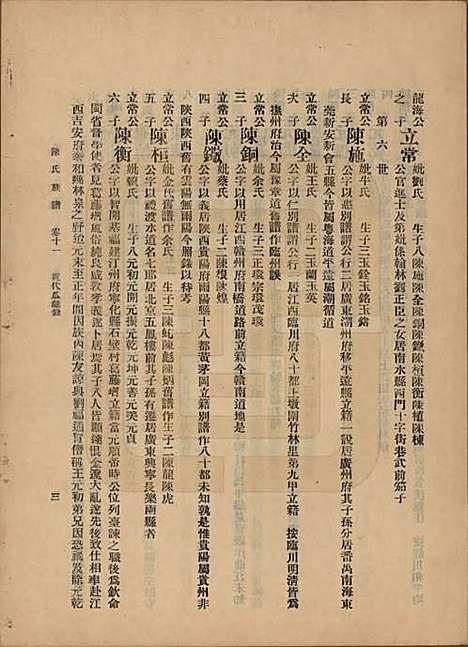 龍海公 妣劉氏 生子八陳施陳全陳銅陳鏾陳桓陳衡陳植陳棟
之子 立常 公官進士及第妣係翰林劉正臣之女居南水縣西門十字街巷武前茄子
第六世
立常公 妣牛氏 生子三玉銓玉銘玉鎔
長子 陳施 公字以惠別譜謂公行十二居廣東潮州府移平遠縣立籍一說居廣州府其子孫分居番禺南海東
莞新安新會五縣今皆屬粵海道平遠屬潮循道
立常公 妣王氏 生子二玉蘭玉英
次子 陳全 公字以仁別譜謂公行二居江西臨川府八十都上墩圍竹林里第九甲立籍 按臨川明清皆爲
撫州府治今屬豫章道舊譜作臨州誤
立常公 妣余氏 生子三正環宗環茂環
三子 陳銅 公字以川居江西贛州府南橋道路前立籍今贛南道地是
立常公 妣蔡氏 生子二陳煉陳煌
四子 陳鏾 公字以義居陝西貴陽府雨陽縣十八都黃茅岡立籍別譜作八十都未知孰是惟貴陽屬貴州非
陝西陝西舊有雲陽無雨陽今照錄以待考
立常公 妣金氏舊譜作余氏 生子三陳虬陳彪陳炳舊譜作生子二陳龍陳虎
五子 陳桓 公字以禮渡水道名七耶居北京五鳳樓前其子孫有遷居廣東興寧長樂兩縣者
立常公 妣姚氏 生子四元振元攄元乾元坤元善元亮元貞
六子 陳衡 公字以智開基福建汀州府寧化縣石壁村葛藤坑當元順常時公位列臺諫之職後爲欽命
閩省督學使者見葛藤坑風俗純良咸敦孝義遂卜居焉其子八人皆顯達恨金淩大亂遂先後致仕相率赴江
西吉安府泰和縣林泉之野道元末至正年間因族內陳友諒與劉福通冐僭前王元初弟兄因恐累及除元乾
陳氏族譜 卷十一
三